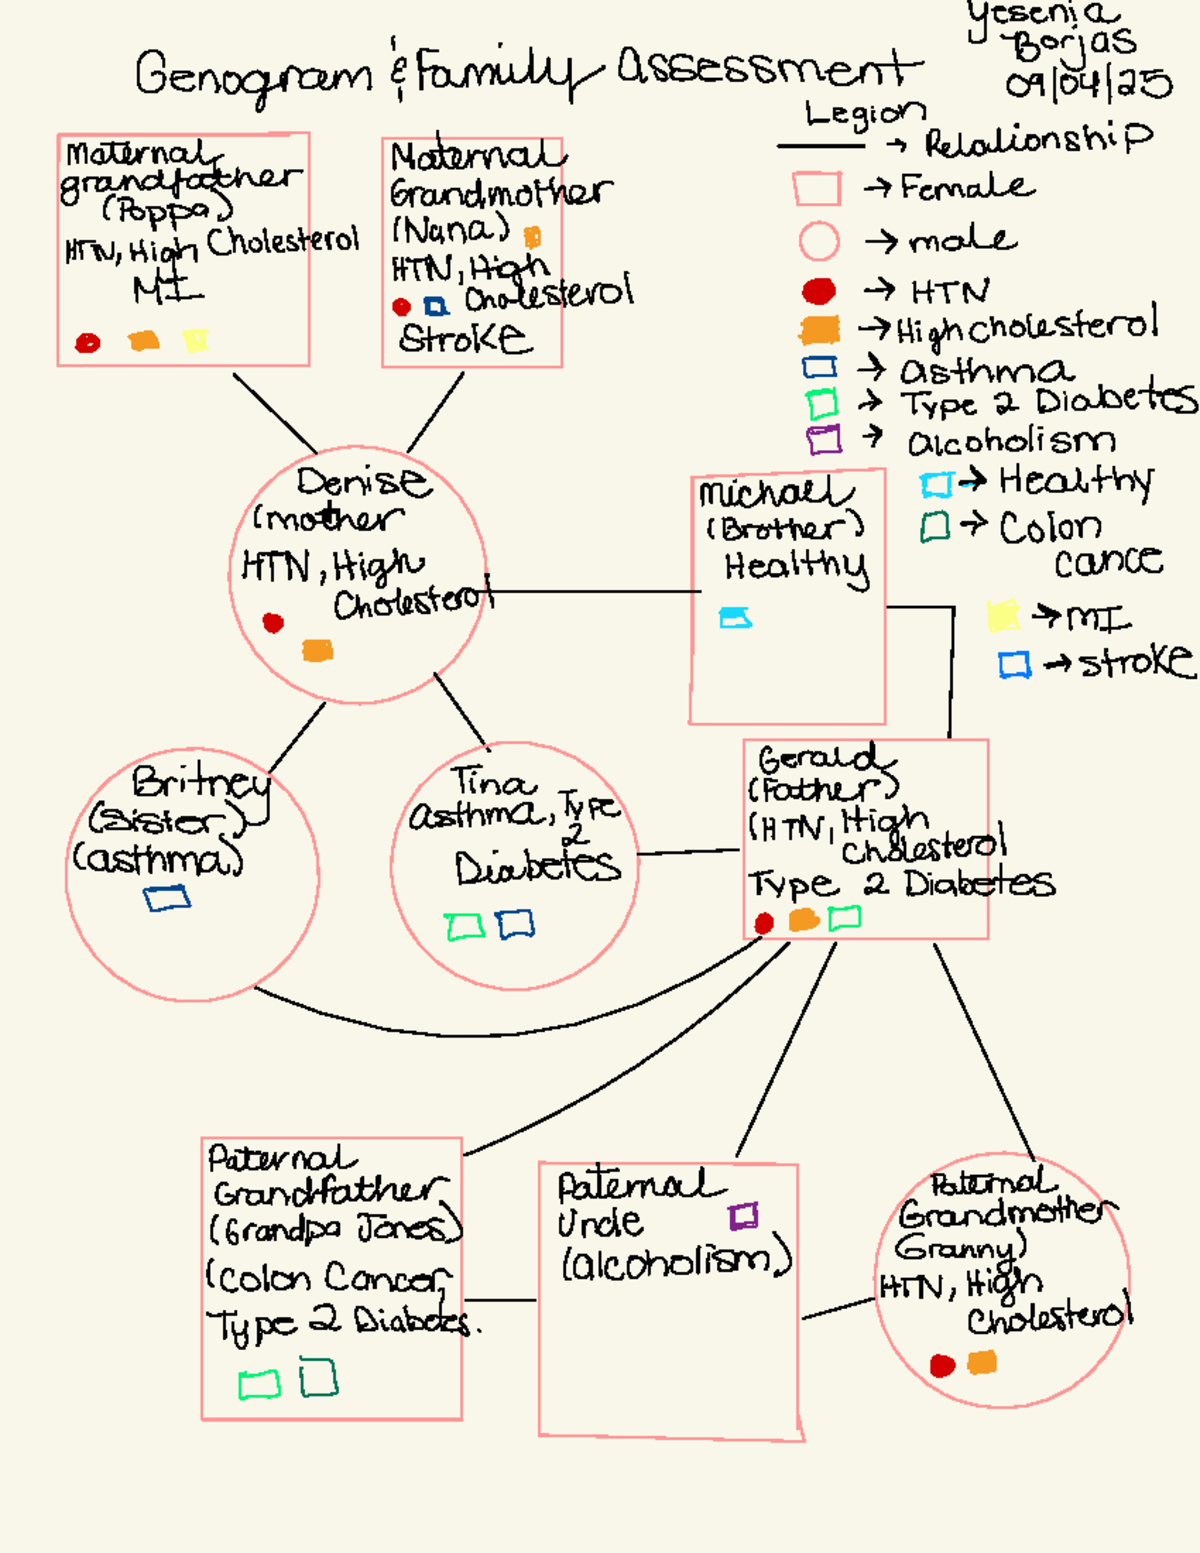 Yesenia
Borjas
09/04/25
Genogram & Family Assessment
Legion
→ Relationship
→ Female
→ male
→ HTN
→ High cholesterol
→ asthma
→ Type 2 Diabetes
→ alcoholism
→ Healthy
→ Colon
cance
→ MI
→ stroke
Maternal
grandfather
(Poppa)
HTN, High Cholesterol
MI
Maternal
Grandmother
(Nana)
HTN, High
Cholesterol
Stroke
Denise
(mother
HTN, High
Cholesterol
Michael
(Brother)
Healthy
Britney
(Sister)
(asthma)
Tina
asthma, Type
2
Diabetes
Gerald
(Father)
(HTN, High
Cholesterol
Type 2 Diabetes
Paternal
Grandfather
(Grandpa Jones)
(Colon Cancer,
Type 2 Diabetes.
Paternal
Uncle
(alcoholism)
Paternal
Grandmother
(Granny)
HTN, High
Cholesterol